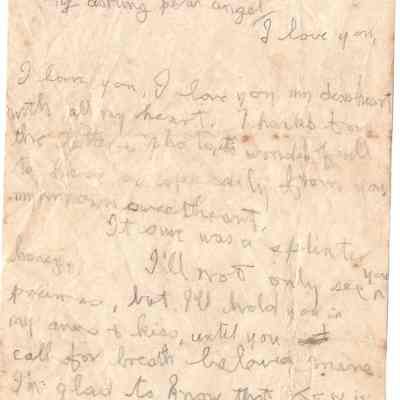 My darling pear angel
I love you,
I love you, I love you my dearheart
with all my heart. Thanks for
the letter & photo, its wonderfull
to hear especially from you,
my own sweetheart.
It sure was a splinter
honey, I'll not only see you
promise, but I'll hold you in
my arms & kiss, until you
call for breath beloved mine
I'm glad to know that